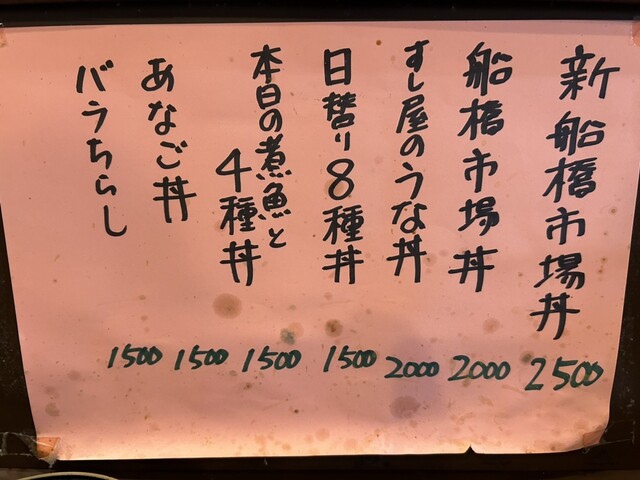 新船橋市場丼 2500
船橋市場丼 2000
すし屋のうな丼 2000
日替り8種丼 1500
本日の煮魚と
4種丼 1500
あなご丼 1500
バラちらし 1500